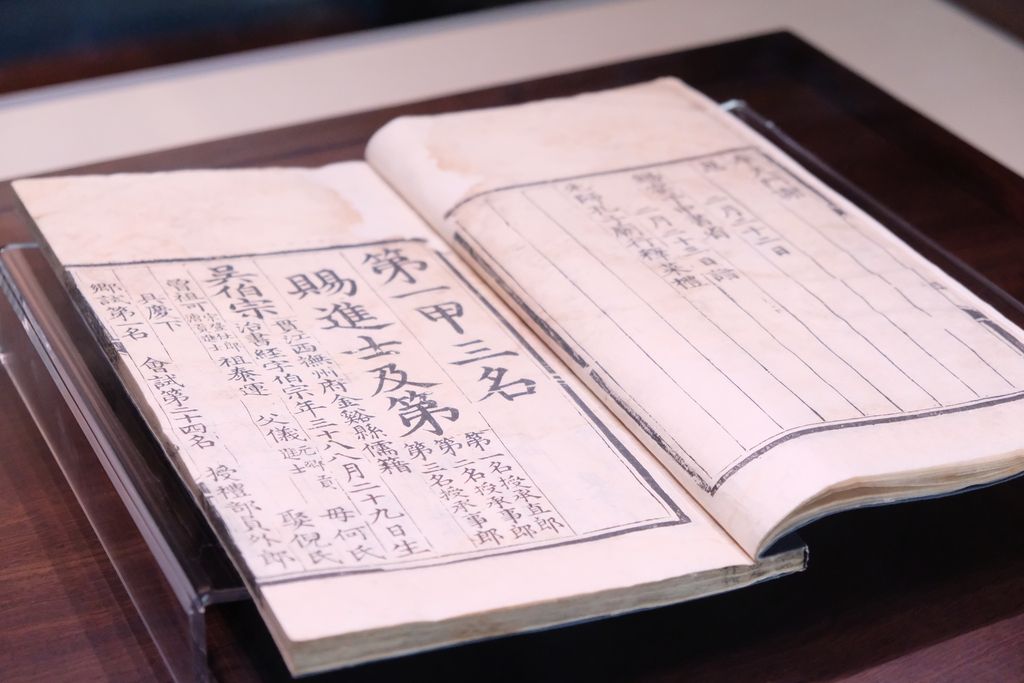 月二十二日
一月二十三日 詣
先師孔子廟行釋菜禮
第一甲三名
第一名授承直郎
第二名授承事郎
第三名授承事郎
賜進士及第
吳伯宗
貫江西撫州府金谿縣儒籍
治書經字伯宗年三十八八月二十九日生
曾祖可 祖泰運 父儀元鄉貢進士 母何氏
具慶下 娶倪氏
鄉試第一名 會試第二十四名 授禮部員外郎